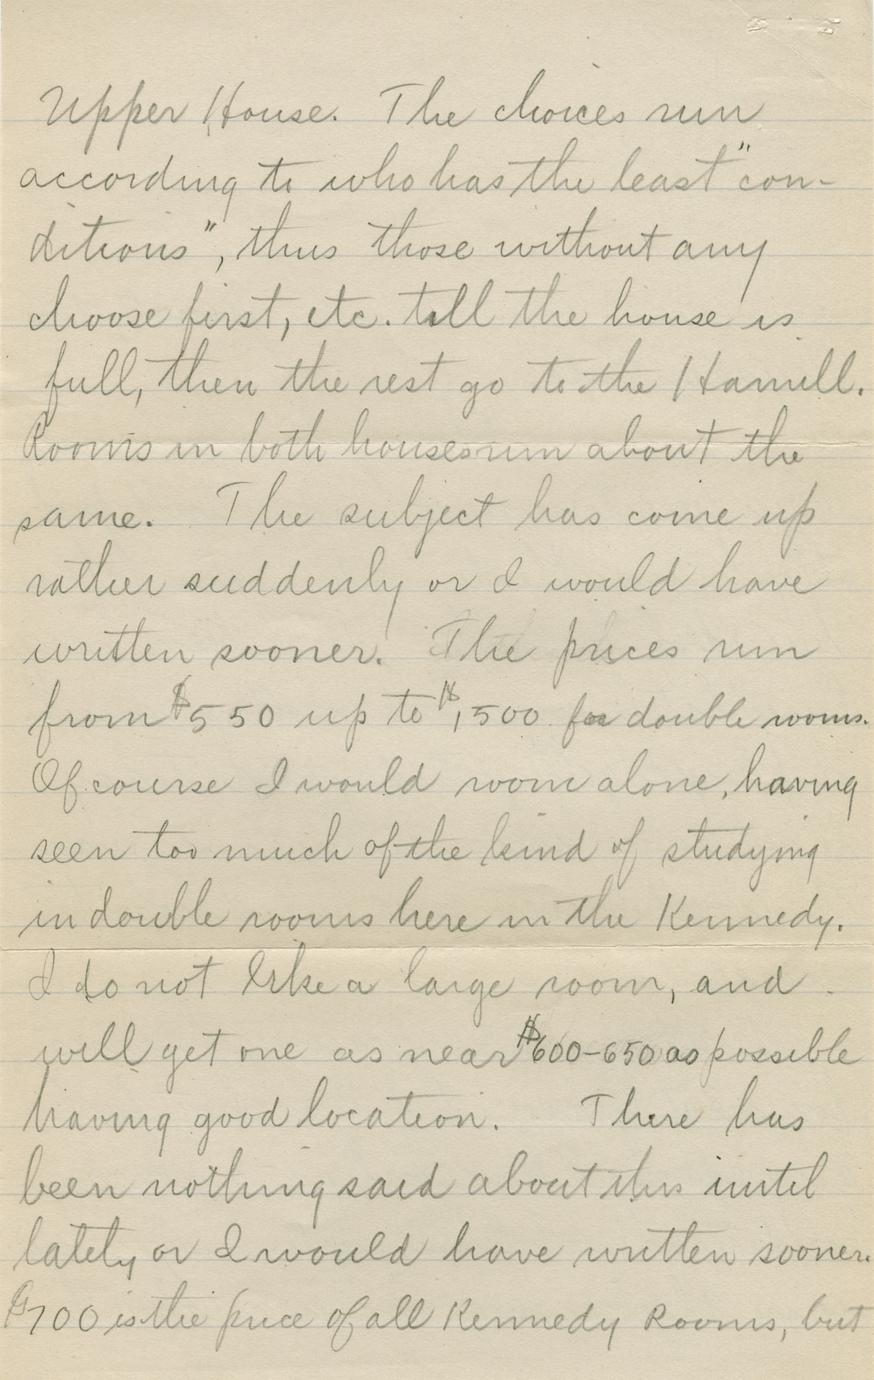 Upper House. The choices run
according to who has the least "con-
ditions", thus those without any
choose first, etc. till the house is
full, then the rest go to the Hamill.
Rooms in both houses run about the
same. The subject has come up
rather suddenly or I would have
written sooner. The prices run
from $550 up to $1,500 for double rooms.
Of course I would room alone, having
seen too much of the kind of studying
in double rooms here in the Kennedy.
I do not like a large room, and
will get one as near $600-650 as possible
having good location. There has
been nothing said about this until
lately or I would have written sooner.
$700 is the price of all Kennedy Rooms, but